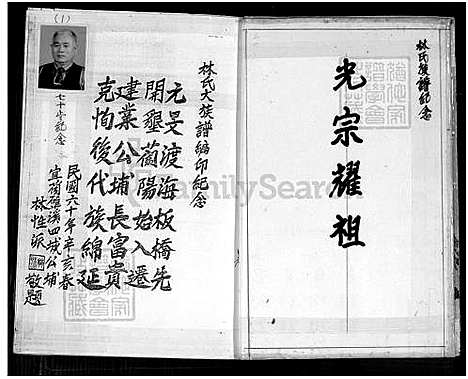 林氏族譜紀念
光宗耀祖
林氏大族譜編印紀念
元旻渡海板橋先
開墾蘭陽始入遷
建業公埔長富貴
克恂後代族綿延
民國六十年辛亥春
宜蘭礁溪四城公埔
林性派 敬題
(1)
七十才記念
FamilySearch